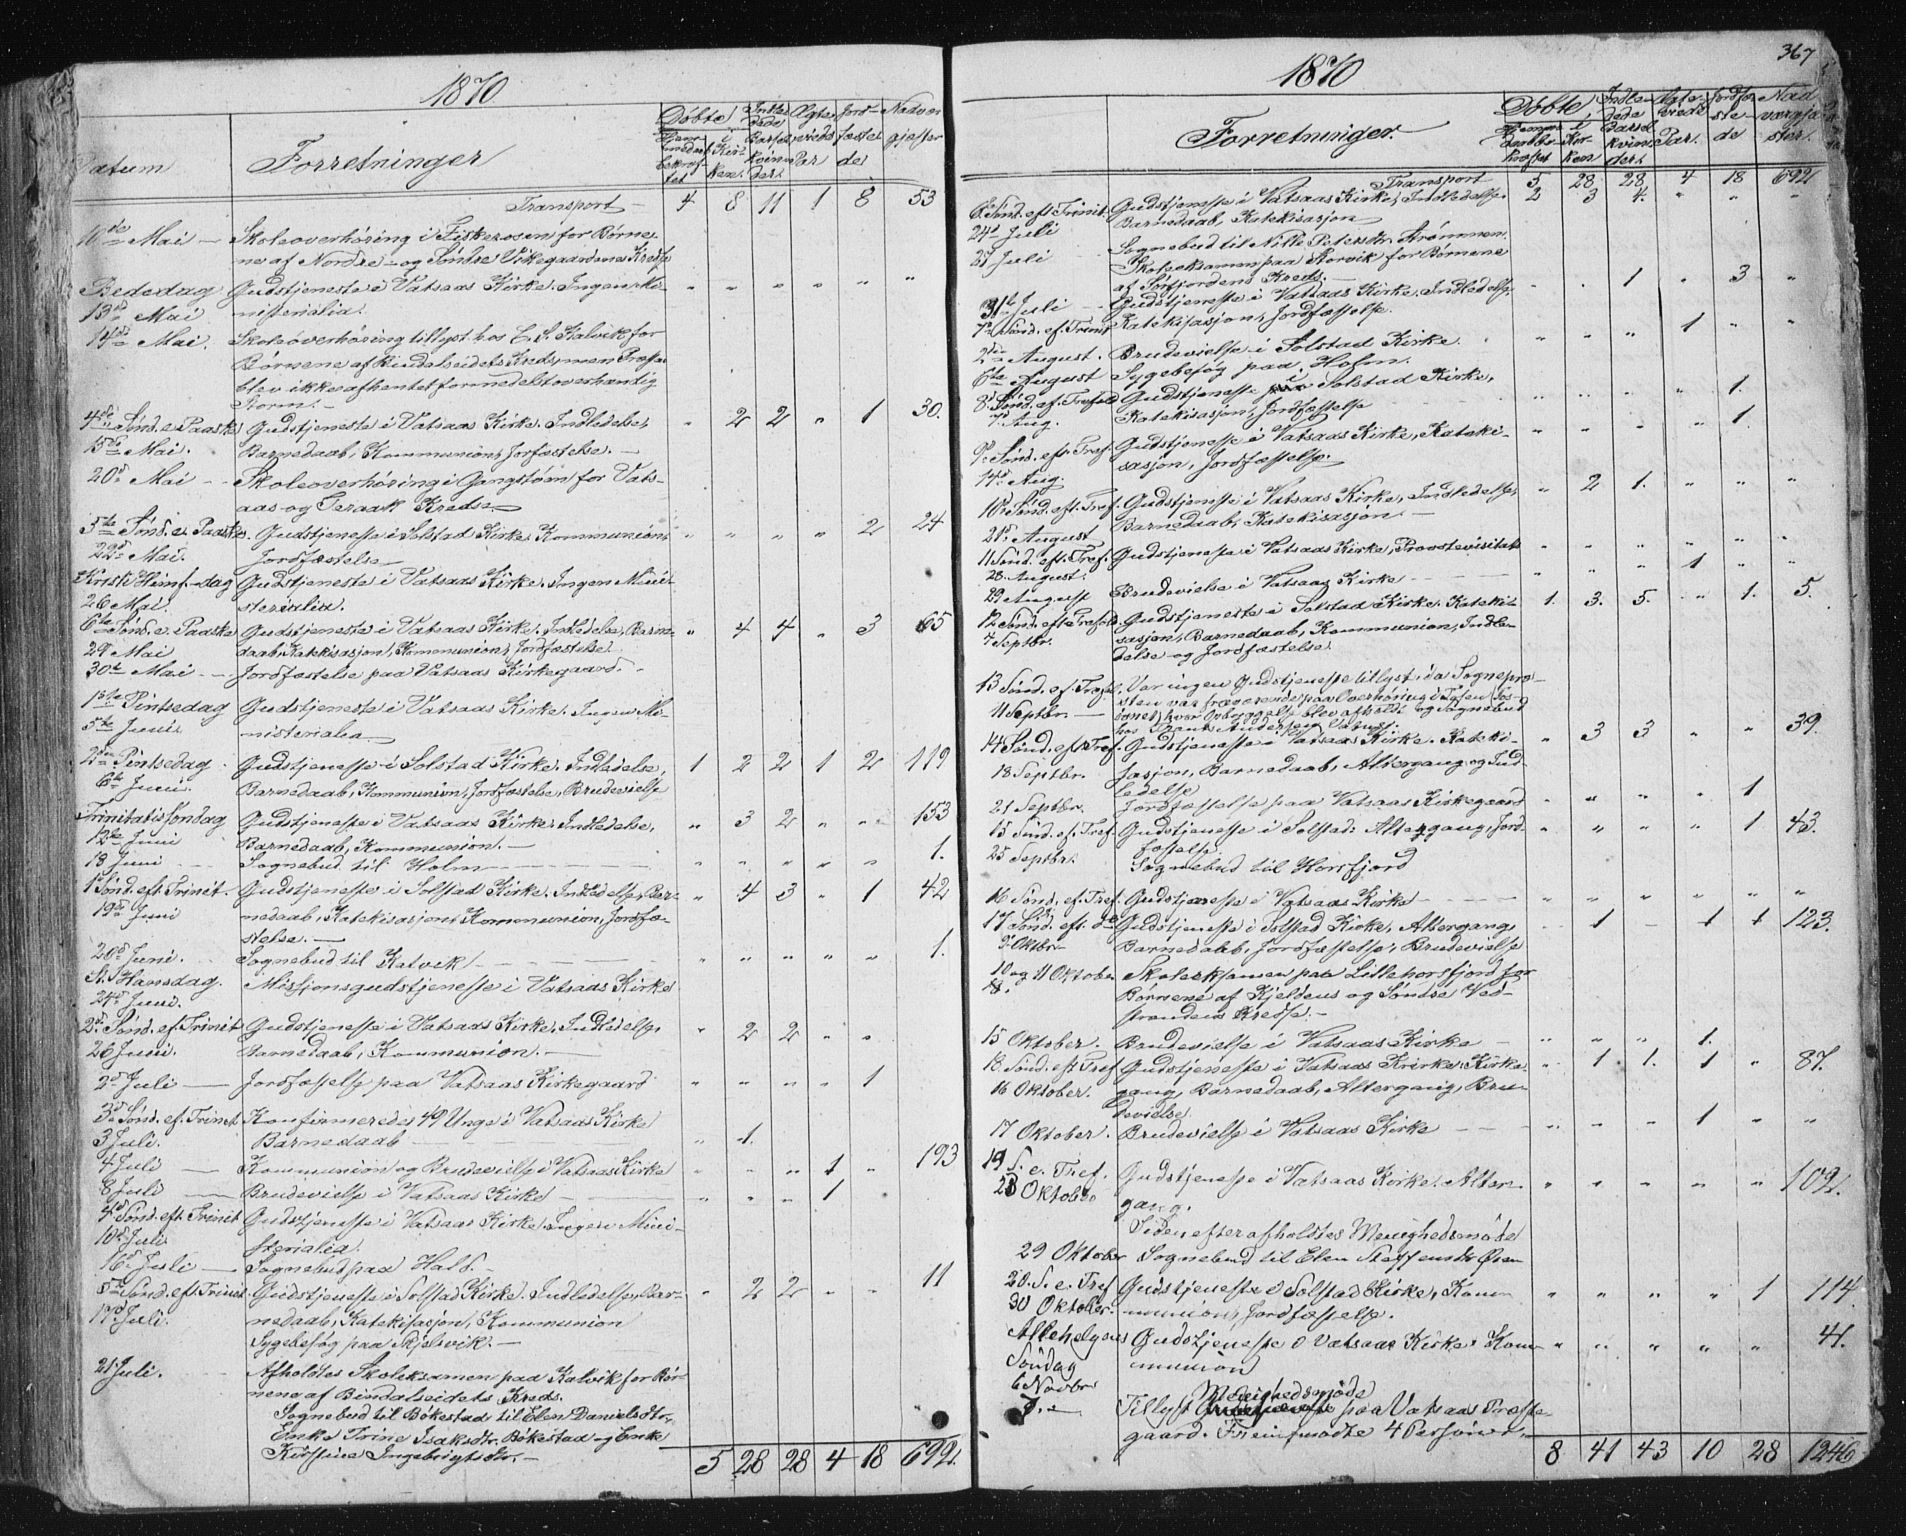 1870
Datum Forretninger Døbte Hjemmedøbt bekræftet i Kirken. Indledede Barselkvinder. Ægteviede Par Jordfæstede Nadvergjæster
Transport — 4 8 11 1 8 53
10de Mai — Skoleoverhøring i Fiskerosen for Børne-
ne af Nordre- og Søndre Vikegaardenes Kreds
Bededag Gudstjeneste i Vatsaas Kirke. Ingen Mi- " " " " " "
13de Mai nisterialia.
14de Mai. Skoleoverhøring tillyst hos E. S. Kalvik for
Børnene af Bindalseidets Kreds men Præsten
blev ikke afhentet formedelst overhændig
Storm. —
4de Sønd. e. Paaske Gudstjeneste i Vatsaas Kirke. Indledelse, " 2 2 " 1 30.
15de Mai. Barnedaab, Kommunion, Jordfæstelse. —
20de Mai — Skoleoverhøring i Gangstøen for Vats-
aas og Teraak Kredse
5te Sønd. e. Paaske. Gudstjeneste i Solstad Kirke. Kommunion, " " " " 2 24
22de Mai. Jordfæstelse
Kristi Himf.dag Gudstjeneste i Vatsaas Kirke. Ingen Mini-
26 Mai. sterialia.
6te Sønd. e. Paaske Gudstjeneste i Vatsaas Kirke. Indledelse, Barne- " 4 4 " 3 65
29 Mai daab, Katekisasjon, Kommunion, Jordfæstelse
30te Mai — Jordfæstelse paa Vatsaas Kirkegaard. —
1ste Pintsedag Gudstjeneste i Vatsaas Kirke. Ingen Mi-
5te Juni nisterialia
2den Pintsedag Gudstjeneste i Solstad Kirke. Indledelse, 1 2 2 1 2 119
6te Juni. Barnedaab, Kommunion, Jordfæstelse, Brudevielse
Trinitatissøndag Gudstjeneste i Vatsaas Kirke. Indledelse, " 3 2 " " 153
12te Juni Barnedaab, Kommunion. —
18 Juni Sognebud til Holm — " " " " " 1.
1ste Sønd. eft. Trinit. Gudstjeneste i Solstad Kirke. Indledelse, Bar- " 4 3 " 1 42
19de Juni nedaab, Katekisasjon, Kommunion, Jordfæ-
stelse. —
20de Juni. Sognebud til Kalvik — " " " " " 1.
St. Hansdag. Missionsgudstjeneste i Vatsaas Kirke
24de Juni.
2de Sønd. ef. Trinit Gudstjeneste i Vatsaas Kirke. Indledelse, " 2 2 " "
26 Juni. Barnedaab, Kommunion. —
2de Juli — Jordfæstelse paa Vatsaas Kirkegaard " " " " 1
3de Sønd. ef. Trinit Konfirmeredes 49 Unge i Vatsaas Kirke
3 Juli. Barnedaab " 1.
4 Juli — Kommunion og Brudevielse i Vatsaas Kirke " " " 1 " 193
8 Juli — Brudevielse i Vatsaas Kirke " " " 1
4de Sønd. eft. Trinit Gudstjeneste i Vatsaas Kirke. Ingen Mini-
10de Juli sterialia.
16de Juli — Sognebud paa Hald. —
5te Sønd. eft. Trinit Gudstjeneste i Solstad Kirke. Indledelse, Bar- " 2 2 " " 11
17de Juli. nedaab, Katekisasjon, Kommunion
Sygebesøg paa Skjelsvik. —
21 Juli. Afholdtes Skoleksamen paa Kalvik for Bør-
nene af Bindalseidets Kreds.
Sognebud til Bøkestad til Elen Danielsdtr.,
Enke Trine Isaksdtr. Bøkestad og Enke
Kirstine Ingebrigtsdtr. —
5 28 28 4 18 692.
1870
367
Forretninger. Døbte Hjemmedaab bekræftet i Kirken Indledede Barselkvinder. Ægteviede Par. Jordfæstede Nadvergjæster.
Transport 5 28 28 4 18 692
6te Sønd. eft. Trinit. Gudstjeneste i Vatsaas Kirke, Indledelse, 2 3 4. " " "
24de Juli Barnedaab, Katekisasjon
Sognebud til Nille Petersdtr. Strømmen.
27 Juli Skoleeksamen paa Storvik for Børnene
af Sørfjordens Kreds. —
31te Juli Gudstjeneste i Vatsaas Kirke. Indledelse, " . 1 " 3 "
7de Sønd. ef. Trinit Katekisasjon, Jordfæstelse.
2den August. Brudevielse i Solstad Kirke. " " " 1 " "
6te August Sygebesøg paa Holm.
8de Sønd. ef. Trefold Gudstjeneste i Solstad Kirke, " " " " 1.
7de Aug. Katekisasjon, Jordfæstelse
9de Sønd. eft. Tref. Gudstjeneste i Vatsaas Kirke, Kateki- " " " " 1.
14de Aug. sasjon, Jordfæstelse.
10de Sønd. eft. Tref. Gudstjeneste i Vatsaas Kirke, Indledelse, " 2 1. " " "
21de August Barnedaab, Katekisasjon. —
11 Sønd. eft. Tref. Gudstjeneste i Vatsaas Kirke, Provstevisitats " " " " " "
28 August.
29 August Brudevielse i Vatsaas Kirke — " " " 1 " "
12 Sønd. eft. Trefold. Gudstjeneste i Solstad Kirke. Kateki- 1. 3. 5. " 1. 5.
4 Septbr. sasjon, Barnedaab, Kommunion, Indle-
delse og Jordfæstelse
13 Sønd. ef. Trefol. Var ingen Gudstjeneste tillyst, da Sognepræ-
sten var fraværende paa Overhøring i
11 Septbr. — hvor Opbyggelse blev afholdt og Sognebud
hos
14 Sønd. eft. Tref. Gudstjeneste i Vatsaas Kirke. Kateki- " 3 3 " " 39.
18 Septbr. sasjon, Barnedaab, Altergang og Ind-
ledelse
21 Septbr. Jordfæstelse paa Vatsaas Kirkegaard " " " " 1
15 Sønd. ef. Tref. Gudstjeneste i Solstad. Altergang, Jord- " " " " 1 43.
25 Septbr. fæstelse.
Sognebud til Horsfjord
16 Sønd. ef. Tref. Gudstjeneste i Vatsaas Kirke — " " " " " "
17 Sønd. eft. do Gudstjeneste i Solstad Kirke, Altergang, " 1 — 1 1 123.
9 Oktbr. Barnedaab, Jordfæstelse, Brudevielse
10 og 11 Oktober Skoleeksamen paa Lillehorsfjord for
Børnene af Kjeldens og Søndre Ved-
strandens Kredse. —
15 Oktober. Brudevielse i Vatsaas Kirke — " " " 1.
18. Sønd. eft Tref Gudstjeneste i Vatsaas Kirke. Kirke- " 1 1. 1 " 87.
16 Oktober. gang, Barnedaab, Altergang, Bru-
devielse
17 Oktober. Brudevielse i Vatsaas Kirke — " " " 1 " "
19 S. e. Tref. Gudstjeneste i Vatsaas Kirke. Alter- " " " " " 102.
23 Oktober gang.
Siden efter afholdtes Menighedsmøde
29 Oktober Sognebud til Elen Steffensdtr. Øren
20. S. e. Tref Gudstjeneste i Solstad Kirke, Kom- " " " " 1 114.
30 Oktober. munion, Jordfæstelse.
Allehelgens Gudstjeneste i Vatsaas Kirke. Kom- " " " " " 41.
Søndag munion
6 Novbr
Menighedsmøde
S. D. Tillyst paa Vatsaas Præste-
gaard. Fremmødte 4 Personer. —
8 41 43 10 28 1246